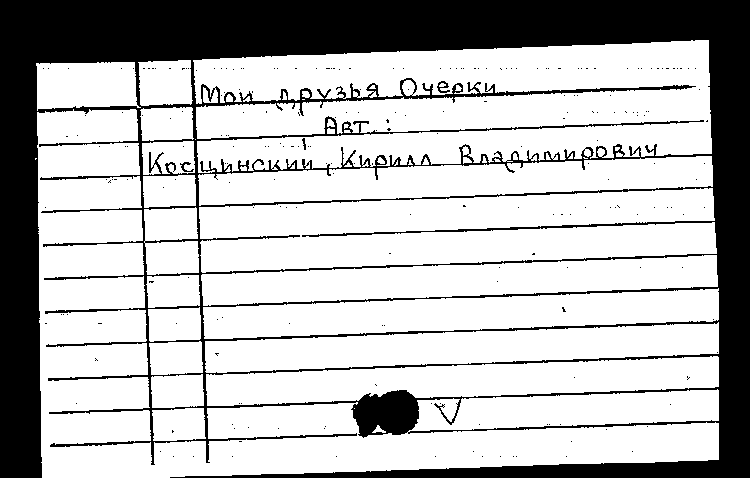 Мои друзья Очерки
Авт.:
Косцинский, Кирилл Владимирович
V